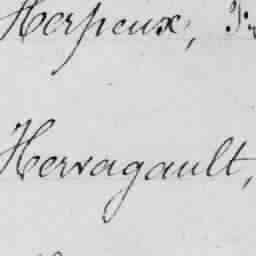 Herpeux,
Hervagault,